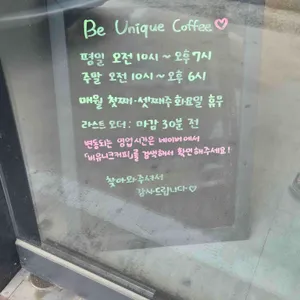 Be Unique Coffee♡
평일 오전 10시 ~ 오후 7시
주말 오전 10시 ~ 오후 6시
매월 첫째·셋째주 화요일 휴무
라스트 오더 : 마감 30분 전
변동되는 영업시간은 네이버에서
「비유니크커피」를 검색해서 확인해주세요!
찾아와주셔서
감사드립니다♡